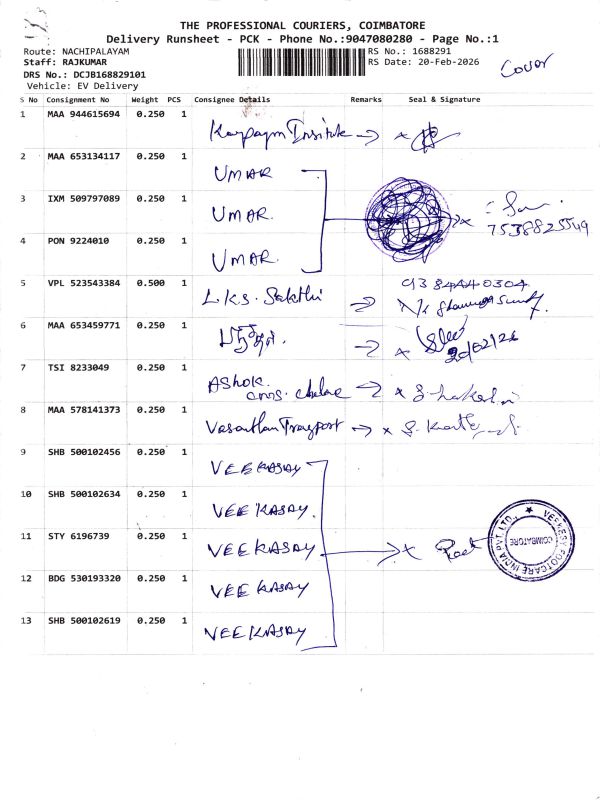 THE PROFESSIONAL COURIERS, COIMBATORE
Delivery Runsheet - PCK - Phone No.:9047080280 - Page No.:1
Route: NACHIPALAYAM
RS No.: 1688291
Staff: RAJKUMAR
RS Date: 20-Feb-2026
Cover
DRS No.: DCJB168829101
Vehicle: EV Delivery
S No Consignment No Weight PCS Consignee Details Remarks Seal & Signature
1 MAA 944615694 0.250 1
2 MAA 653134117 0.250 1 UMAR
3 IXM 509797089 0.250 1 UMAR.
7538825549
4 PON 9224010 0.250 1 UMAR.
5 VPL 523543384 0.500 1 L.K.S. Sakthi
9384440304
6 MAA 653459771 0.250 1
20/02/26
7 TSI 8233049 0.250 1 Ashok.
8 MAA 578141373 0.250 1 Vasanthan Transport
9 SHB 500102456 0.250 1 VEEKASAY
10 SHB 500102634 0.250 1 VEEKASAY.
11 STY 6196739 0.250 1 VEEKASAY
VEEKESY FOOTCARE INDIA PVT. LTD.,
COIMBATORE
12 BDG 530193320 0.250 1 VEEKASAY
13 SHB 500102619 0.250 1 VEEKASAY